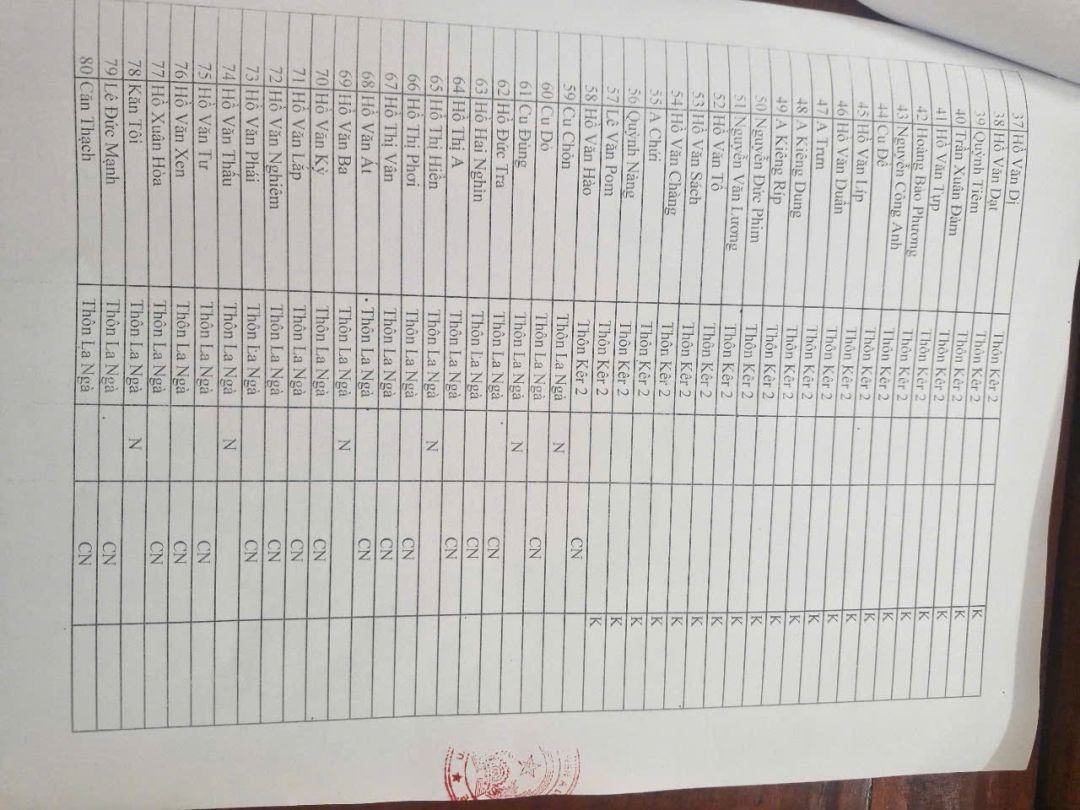 37 Hồ Văn Dị Thôn Kêr 2 K
38 Hồ Văn Dạt Thôn Kêr 2 K
39 Quỳnh Tiêm Thôn Kêr 2 K
40 Trần Xuân Đàm Thôn Kêr 2 K
41 Hồ Văn Tựp Thôn Kêr 2 K
42 Hoàng Bảo Phương Thôn Kêr 2 K
43 Nguyễn Công Anh Thôn Kêr 2 K
44 Cu Dê Thôn Kêr 2 K
45 Hồ Văn Líp Thôn Kêr 2 K
46 Hồ Văn Duẩn Thôn Kêr 2 K
47 A Trum Thôn Kêr 2 K
48 A Kiêng Dung Thôn Kêr 2 K
49 A Kiêng Ríp Thôn Kêr 2 K
50 Nguyễn Đức Phim Thôn Kêr 2 K
51 Nguyễn Văn Lương Thôn Kêr 2 K
52 Hồ Văn Tổ Thôn Kêr 2 K
53 Hồ Văn Sách Thôn Kêr 2 K
54 Hồ Văn Chàng Thôn Kêr 2 K
55 A Chửi Thôn Kêr 2 K
56 Quỳnh Năng Thôn Kêr 2 K
57 Lê Văn Pom Thôn Kêr 2 K
58 Hồ Văn Hào Thôn Kêr 2 CN
59 Cu Chôn Thôn La Ngà N
60 Cu Dò Thôn La Ngà CN
61 Cu Đùng Thôn La Ngà N
62 Hồ Đức Tra Thôn La Ngà CN
63 Hồ Hai Nghìn Thôn La Ngà CN
64 Hồ Thị A Thôn La Ngà CN
65 Hồ Thị Hiền Thôn La Ngà N
66 Hồ Thị Phơi Thôn La Ngà CN
67 Hồ Thị Vân Thôn La Ngà CN
68 Hồ Văn Át Thôn La Ngà CN
69 Hồ Văn Ba Thôn La Ngà N
70 Hồ Văn Kỳ Thôn La Ngà CN
71 Hồ Văn Lập Thôn La Ngà CN
72 Hồ Văn Nghiêm Thôn La Ngà CN
73 Hồ Văn Phái Thôn La Ngà CN
74 Hồ Văn Thấu Thôn La Ngà N
75 Hồ Văn Tư Thôn La Ngà CN
76 Hồ Văn Xon Thôn La Ngà CN
77 Hồ Xuân Hòa Thôn La Ngà CN
78 Kăn Tôi Thôn La Ngà N
79 Lê Đức Mạnh Thôn La Ngà CN
80 Căn Thạch Thôn La Ngà CN